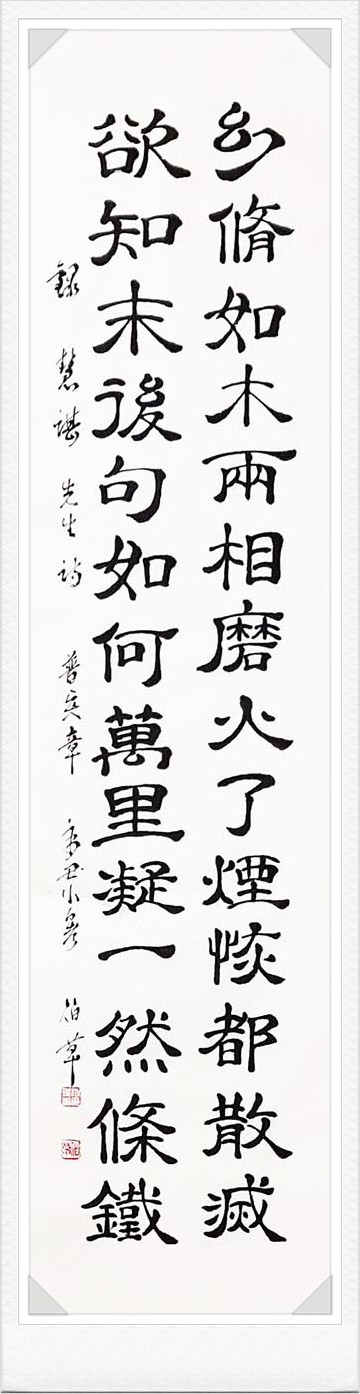 幻脩如木兩相磨火了煙恢都散滅
欲知末後句如何萬里凝一然條鐵
錄 慧諶 先生詩 普賢章 辛丑小寒 伯草